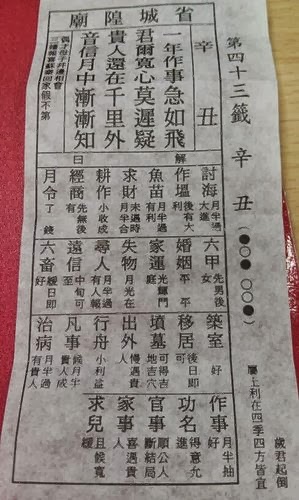 省城隍廟
第四十三籤 辛丑
(●○● ○○●)
歲君起倒
屬土利在四季四方皆宜
辛丑
一年作事急如飛
君爾寬心莫遲疑
貴人還在千里外
音信月中漸漸知
三種報喜蘇秦回家假不第
解曰
討海 月半過大進
作塭 後有大利
魚苗 有利
求財 未遇時月半合
耕作 小收成
經商 先無後有
月令 了錢
六甲 先男後女
婚姻 平平
家運 光輝門庭
失物 月光在
尋人 月半過有人報
遠信 中旬可至
六畜 緩日即好
築室 好
移居 後日即可
墳墓 可得吉地吉穴
出外 慢遇貴人
行舟 小利益
凡事 候月半貴人成
治病 月半過有貴人
作事 月半抽好
功名 得意允進
官事 順公人斷結局
家事 喜遇貴人
求兒 且候寬緩